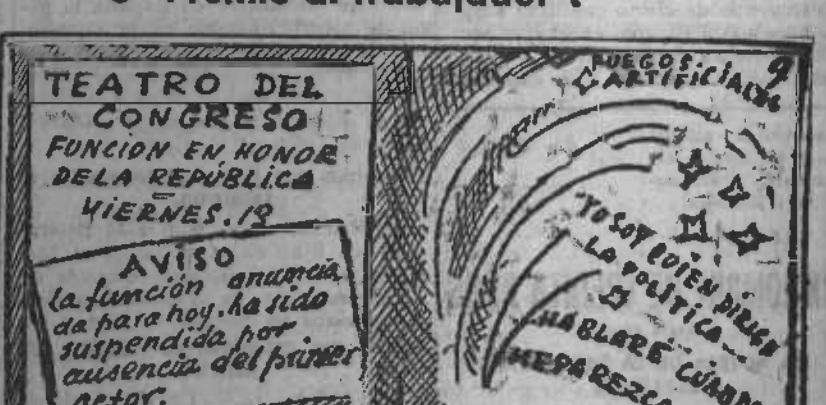 TEATRO DEL
CONGRESO
FUNCION EN HONOR
DE LA REPÚBLICA
VIERNES. 19
AVISO
la función anuncia
da para hoy, ha sido
suspendida por
ausencia del primer
actor.
FUEGOS
ARTIFICIALES
9
"YO SOY QUIEN DIRIGE
LA POLITICA"
HABLARÉ CUANDO
ME PAREZCA